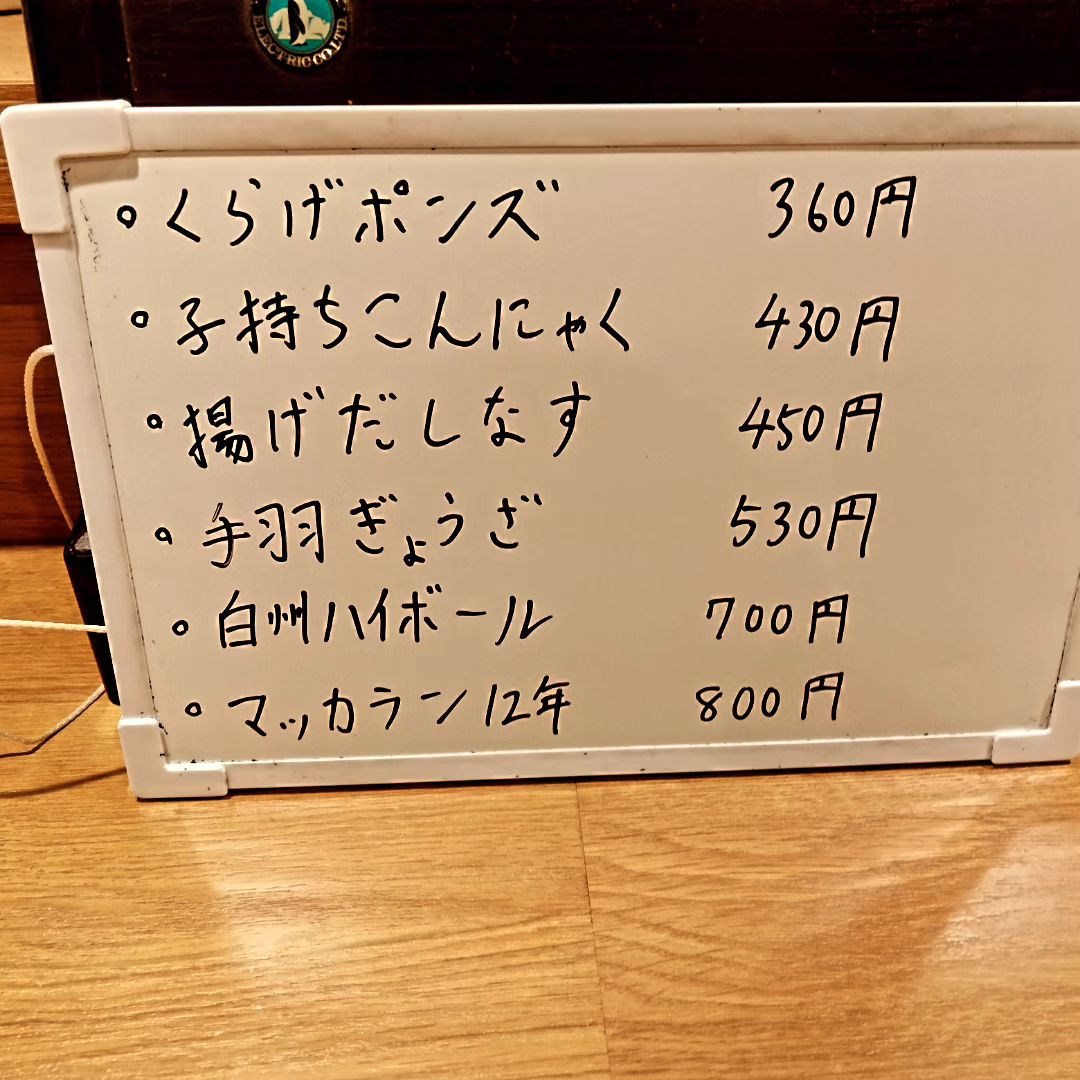 ELECTRIC CO.LTD.
。くらげポンズ 360円
。子持ちこんにゃく 430円
。揚げだしなす 450円
。手羽ぎょうざ 530円
。白州ハイボール 700円
。マッカラン12年 800円